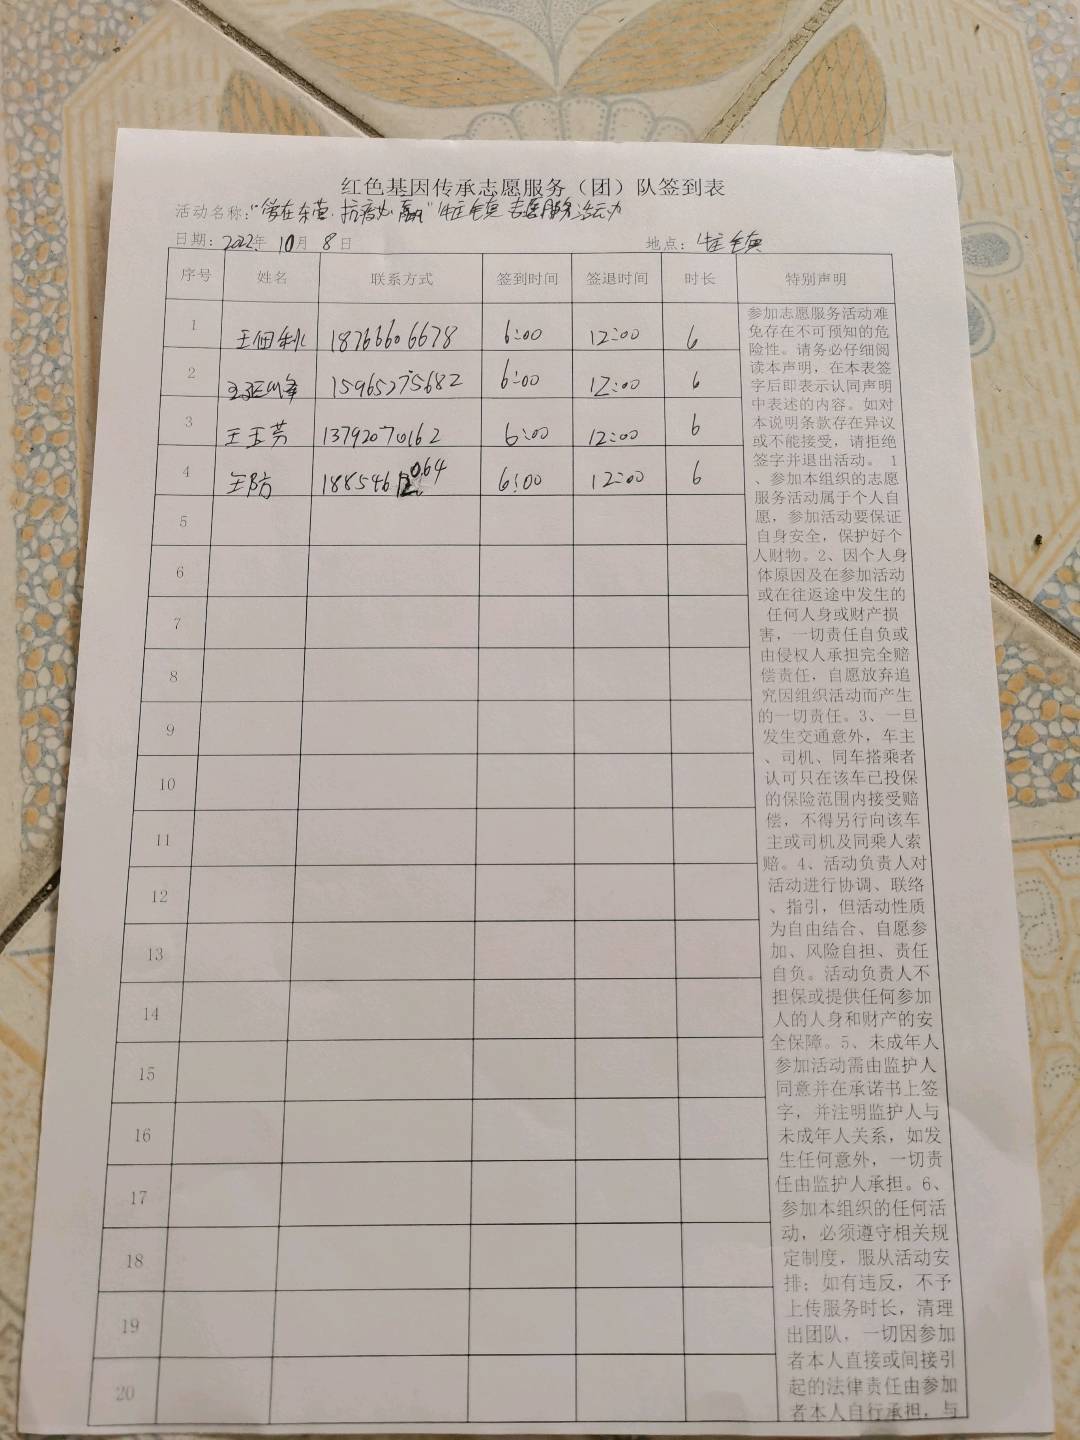 红色基因传承志愿服务（团）队签到表
活动名称：“爱在东营·抗疫必赢”牛庄镇志愿服务活动
日期：2022年 10月 8日 地点：牛庄镇
序号 姓名 联系方式 签到时间 签退时间 时长 特别声明
1 王 18766606678 6:00 12:00 6
2 15965275682 6:00 12:00 6
3 王玉芳 13792070162 6:00 12:00 6
4 王防 188546 064 6:00 12:00 6
5
6
7
8
9
10
11
12
13
14
15
16
17
18
19
20
参加志愿服务活动难
免存在不可预知的危
险性。请务必仔细阅
读本声明，在本表签
字后即表示认同声明
中表述的内容。如对
本说明条款存在异议
或不能接受，请拒绝
签字并退出活动。 1
、参加本组织的志愿
服务活动属于个人自
愿，参加活动要保证
自身安全，保护好个
人财物。2、因个人身
体原因及在参加活动
或在往返途中发生的
任何人身或财产损
害，一切责任自负或
由侵权人承担完全赔
偿责任，自愿放弃追
究因组织活动而产生
的一切责任。3、一旦
发生交通意外，车主
、司机、同车搭乘者
认可只在该车已投保
的保险范围内接受赔
偿，不得另行向该车
主或司机及同乘人索
赔。4、活动负责人对
活动进行协调、联络
、指引，但活动性质
为自由结合、自愿参
加、风险自担、责任
自负。活动负责人不
担保或提供任何参加
人的人身和财产的安
全保障。5、未成年人
参加活动需由监护人
同意并在承诺书上签
字，并注明监护人与
未成年人关系，如发
生任何意外，一切责
任由监护人承担。6、
参加本组织的任何活
动，必须遵守相关规
定制度，服从活动安
排；如有违反，不予
上传服务时长，清理
出团队，一切因参加
者本人直接或间接引
起的法律责任由参加
者本人自行承担，与